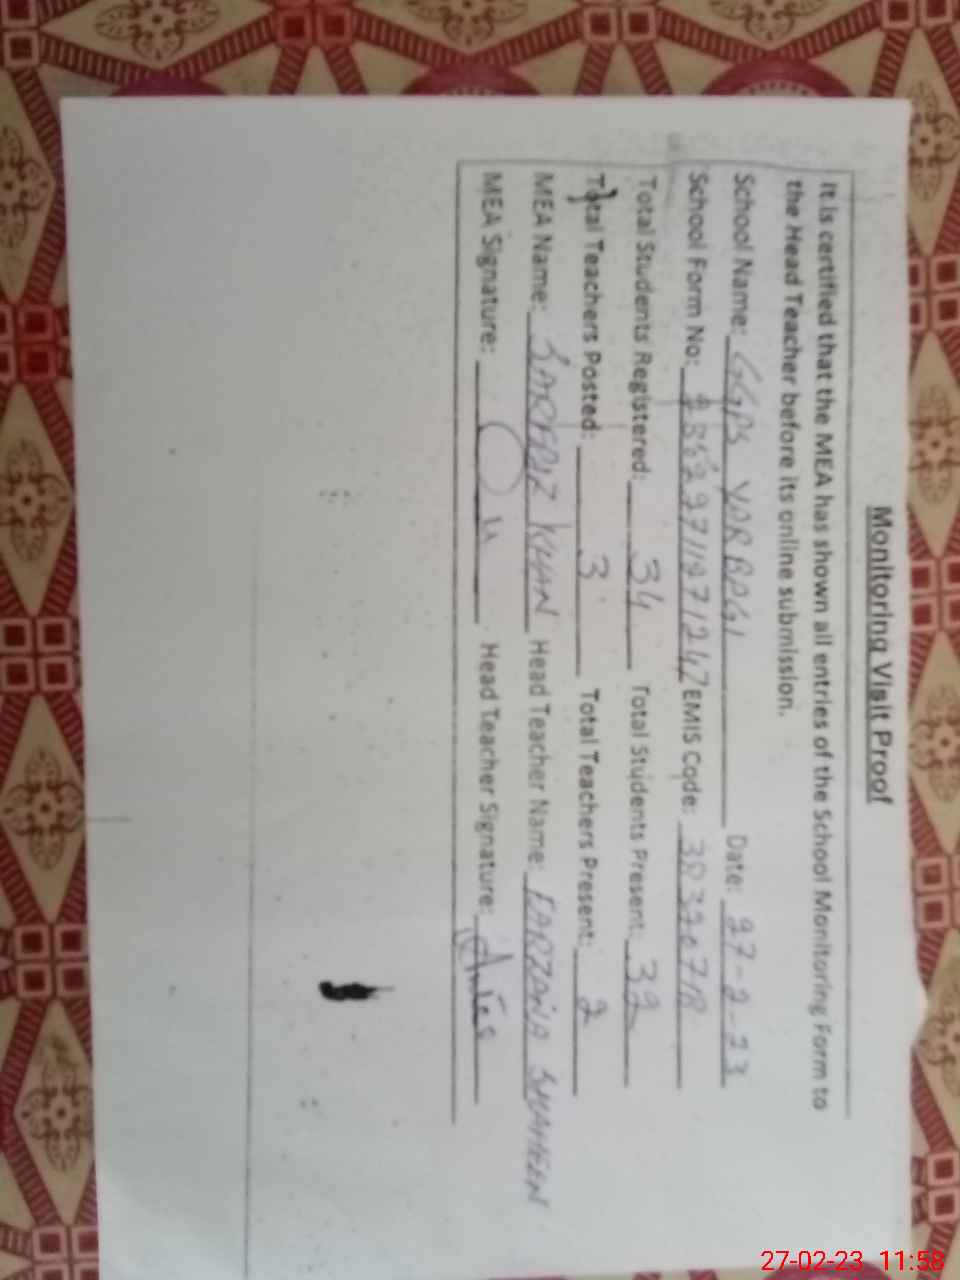 Monitoring Visit Proof
It is certified that the MEA has shown all entries of the School Monitoring Form to
the Head Teacher before its online submission.
School Name: GGPS YAR BAGI Date: 27-2-23
School Form No: EMIS Code:
Total Students Registered: 34 Total Students Present: 32
Total Teachers Posted: 3 Total Teachers Present: 2
MEA Name: SARFRAZ KHAN Head Teacher Name: FARZANA SHAHEEN
MEA Signature: Head Teacher Signature:
27-02-23 11:58